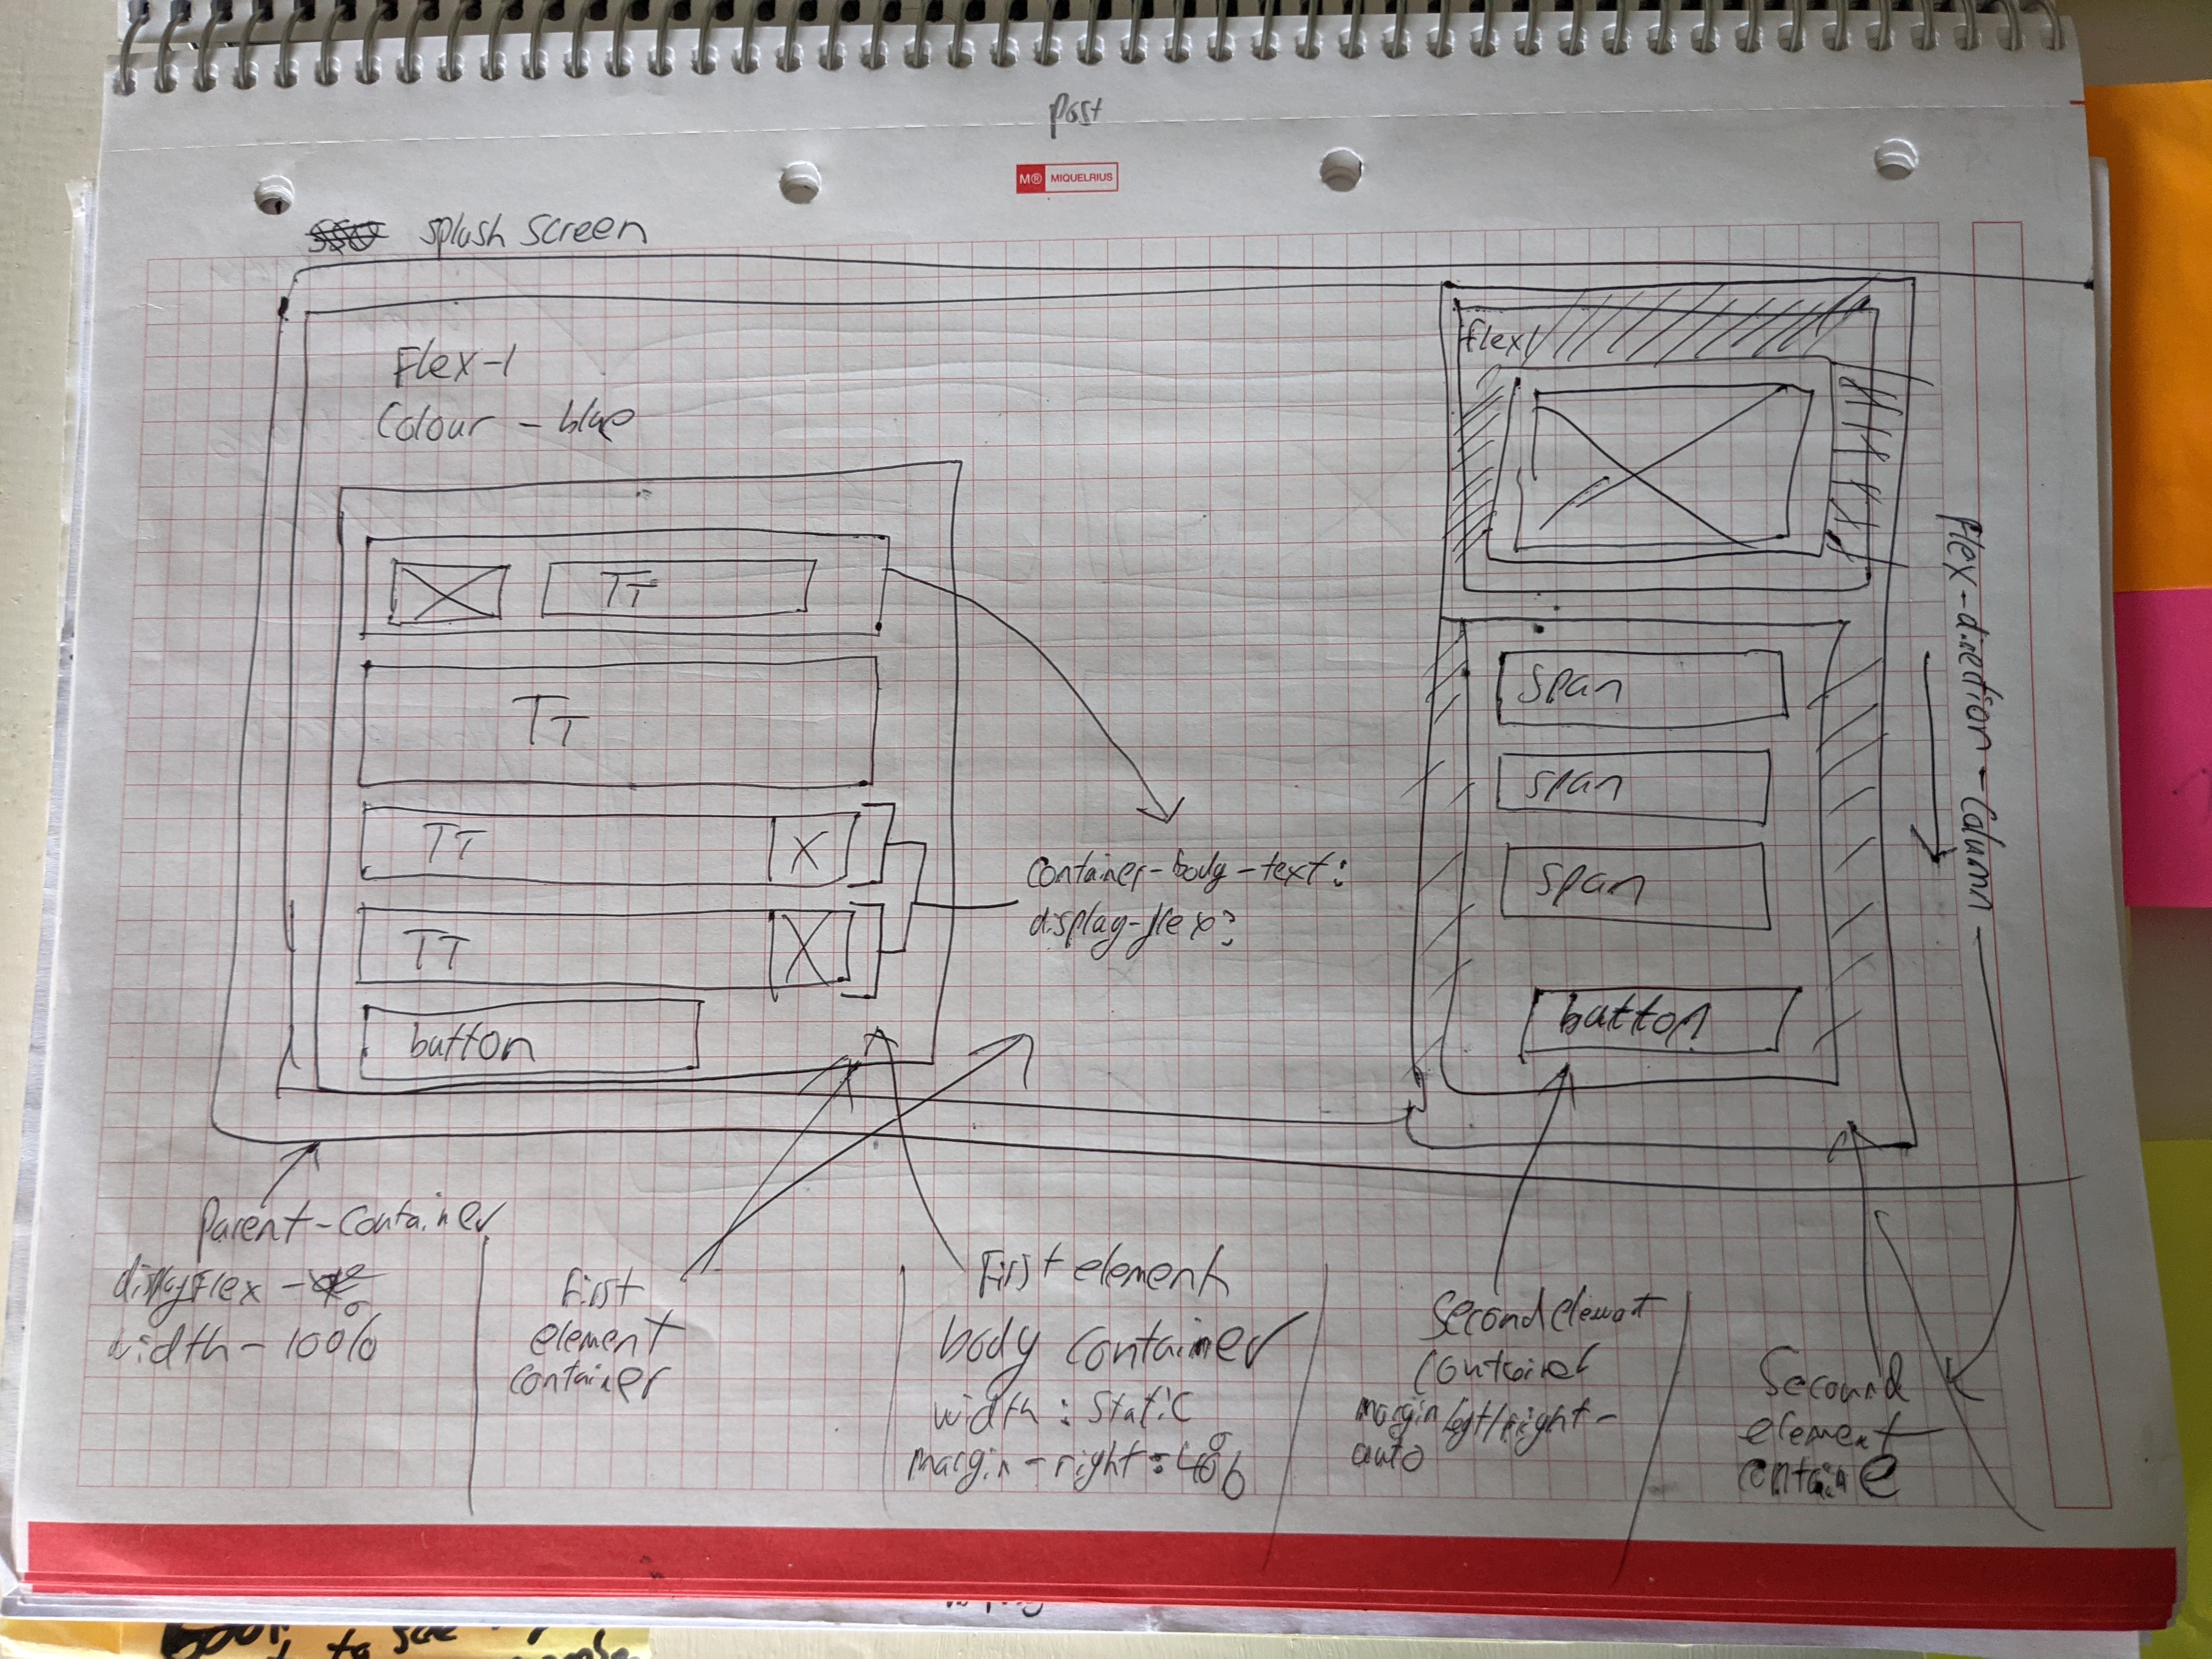 Post
M® MIQUELRIUS
splash screen
Flex-1
Colour - blue
TT
TT
TT X
TT X
button
container-body-text:
display-flex;
flex1
span
span
span
button
flex-direction-Column
Parent-Container
displayFlex -
width - 100%
first
element
container
First element
body container
width : Static
margin-right : 40%
Second element
container
margin left/right-
auto
Secound
element
containe
to